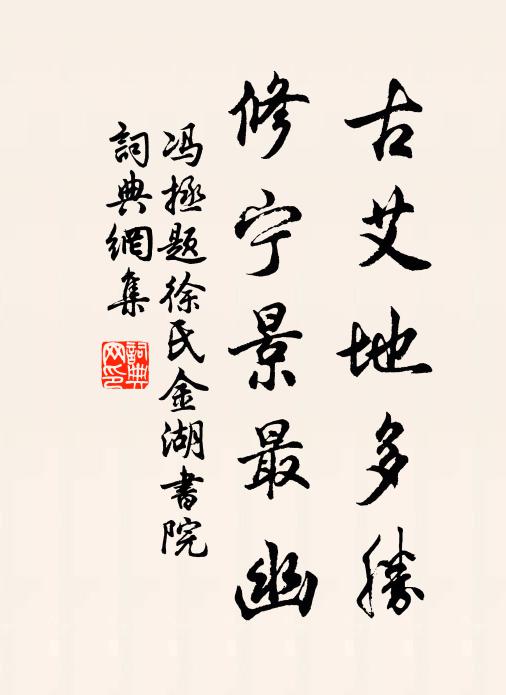 古艾地多勝
修宁景最幽
冯拯题徐氏金湖書院
詞典網集
詞典网印